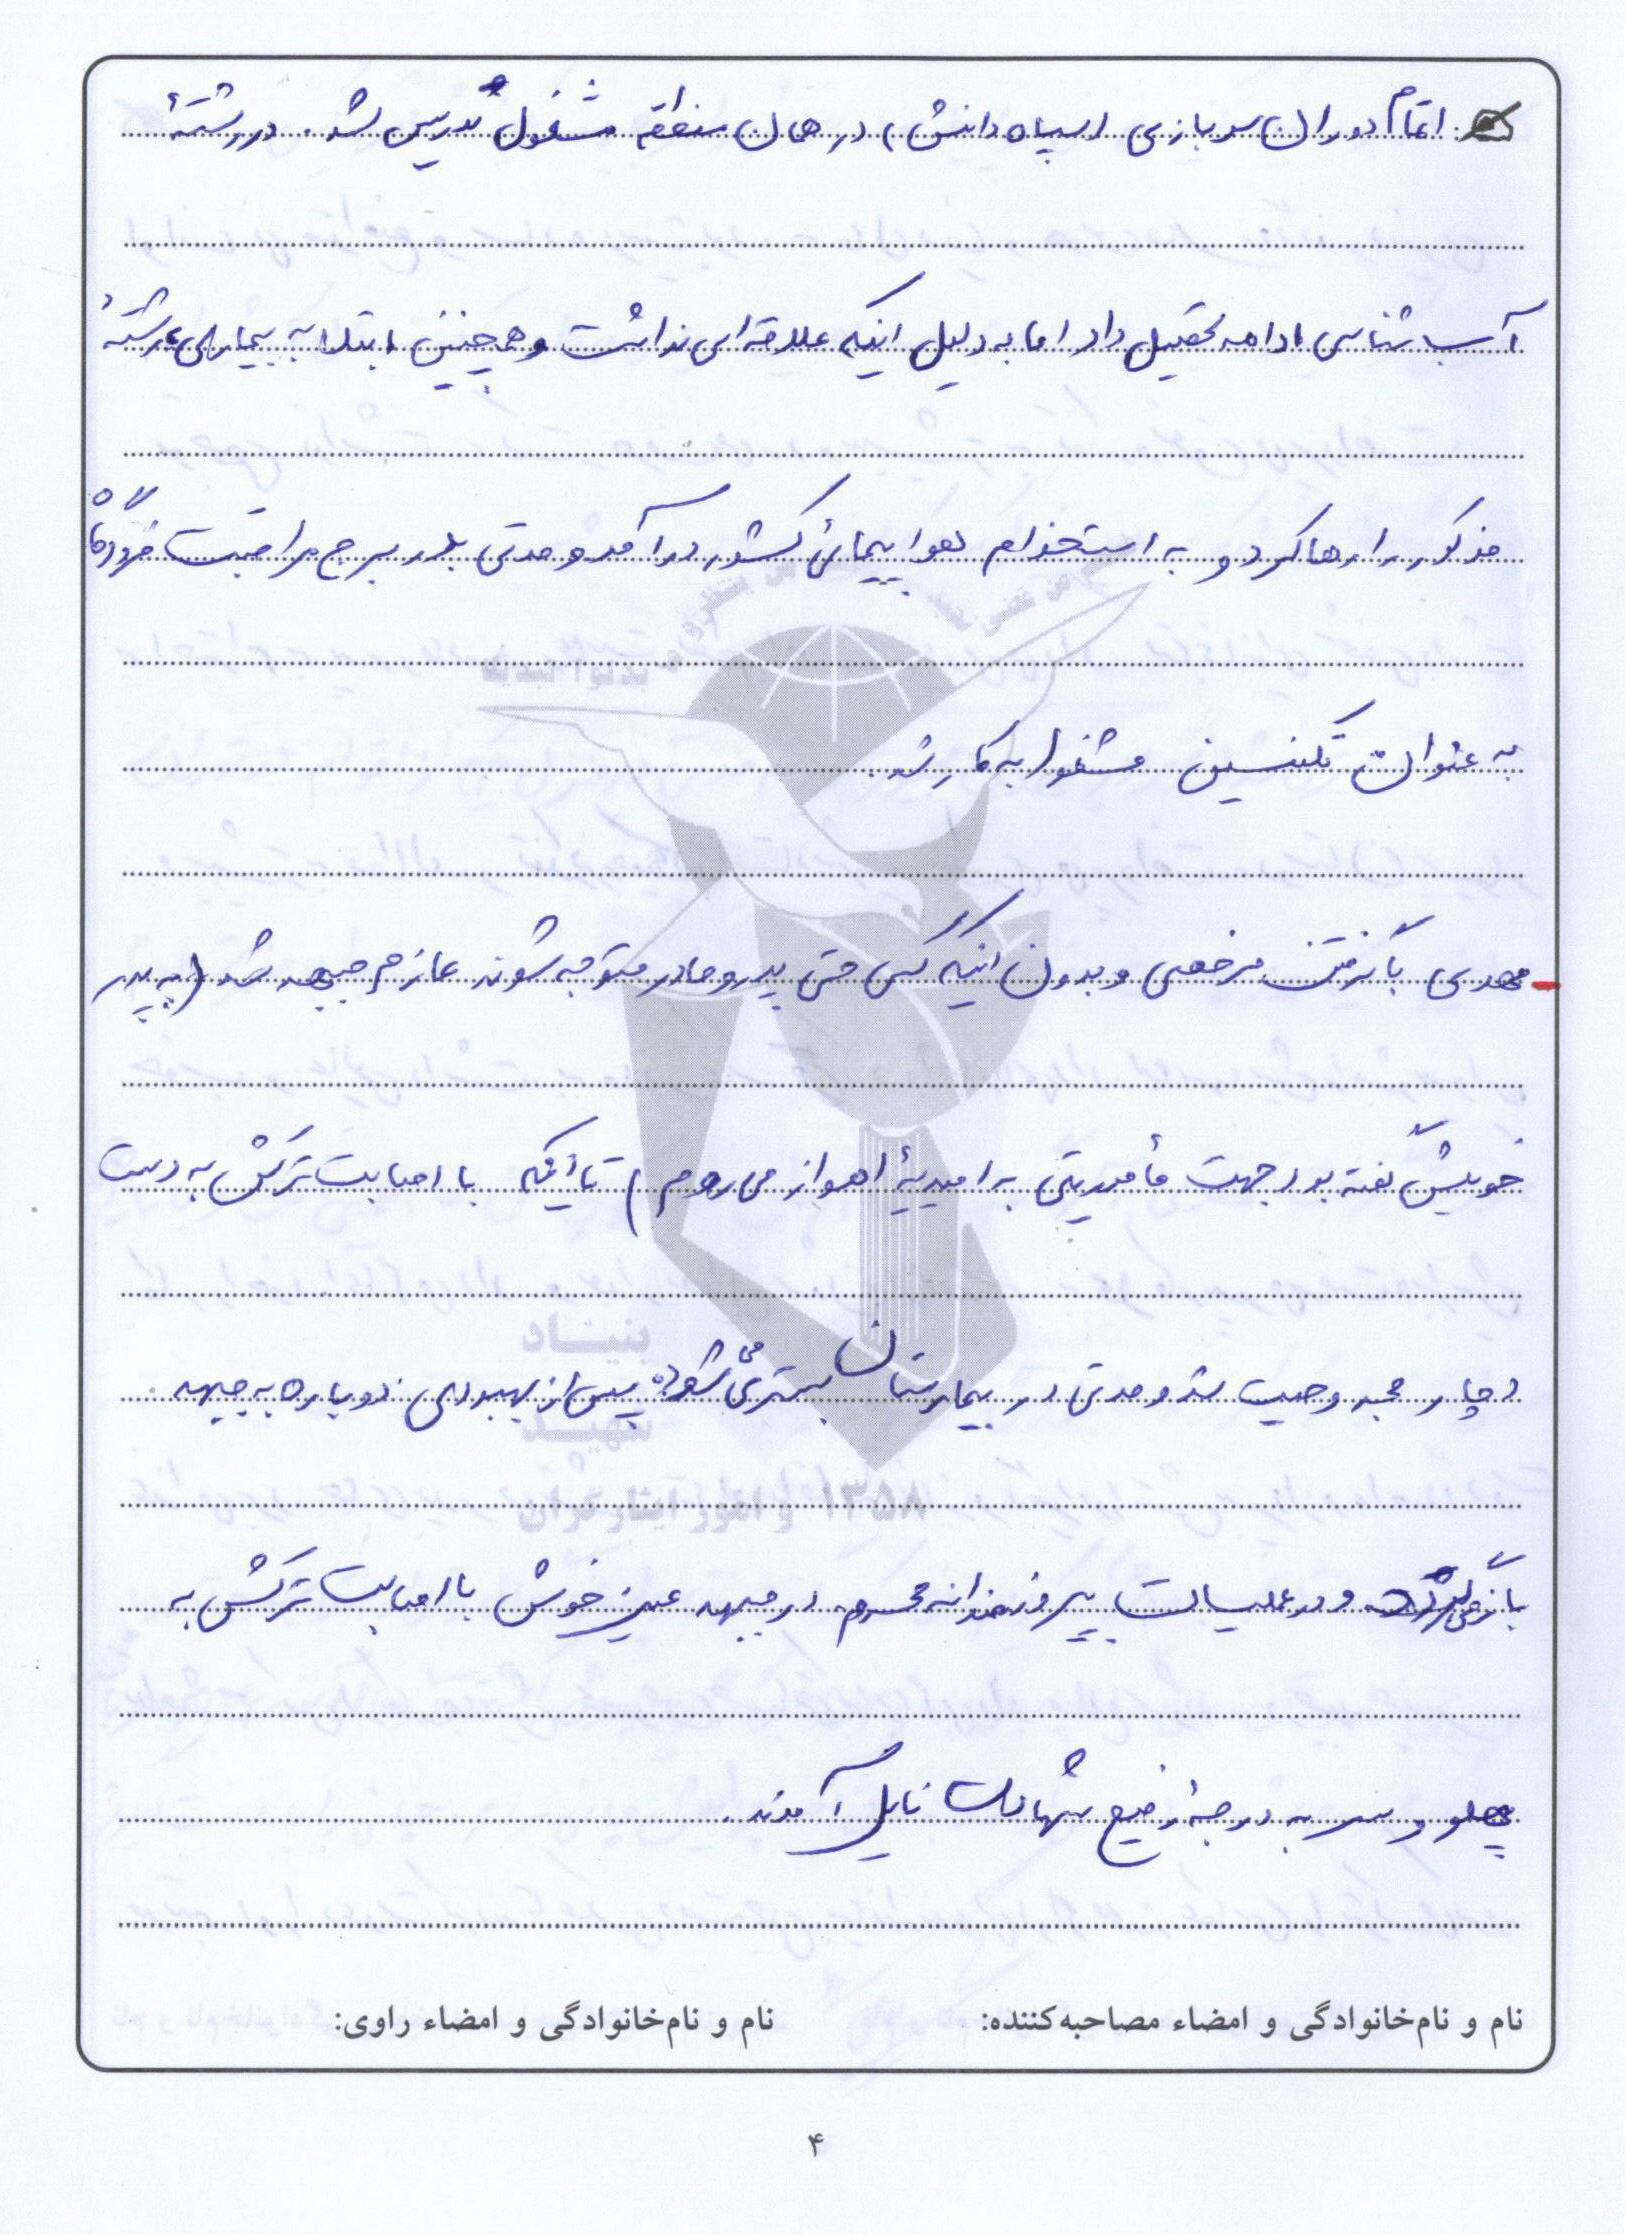 اتمام دوران سربازی (سپاه دانش) در همان منطقه مشغول تدریس شد. در رشتهٔ
آب‌شناسی ادامه تحصیل داد اما به دلیل اینکه علاقه‌ای نداشت و همچنین ابتلا به بیماری، رشتهٔ
مذکور را رها کرد و به استخدام هواپیمائی کشور درآمد و مدتی در برج مراقبت فرودگاه
به عنوان تکنسین مشغول به کار شد.
مهدی با گرفتن مرخصی و بدون اینکه کسی حتی پدر و مادر متوجه شوند عازم جبهه شد (به پدر
خویش گفته بود جهت مأموریتی به امیدیهٔ اهواز می‌روم) تا اینکه با اصابت ترکش به دست
دچار مجروحیت شد و مدتی در بیمارستان بستری می‌شود. پس از بهبودی دوباره به جبهه
بازمی‌گردد و در عملیات پیروزمندانه محرم در جبهه عین خوش با اصابت ترکش به
پهلو و سر به درجهٔ رفیع شهادت نایل آمدند.
بنیاد
شهید
و امور ایثارگران ۱۳۵۸
نام و نام‌خانوادگی و امضاء مصاحبه‌کننده: نام و نام‌خانوادگی و امضاء راوی:
۴